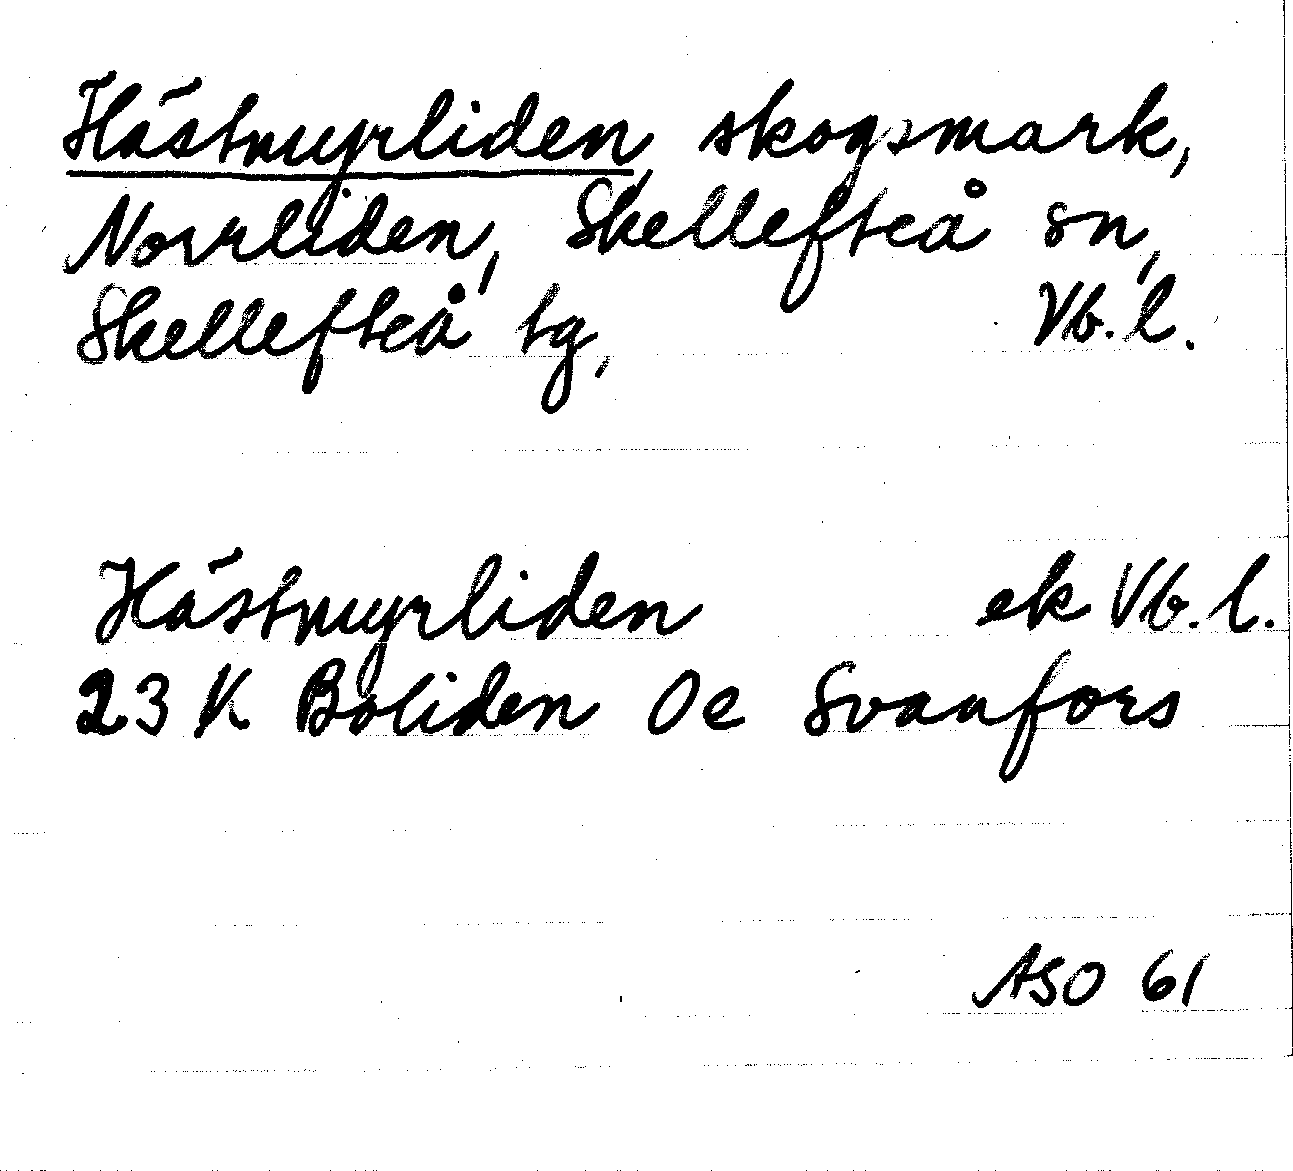 Hästmyrliden, skogsmark,
Norrliden, Skellefteå sn,
Skellefteå tg, Vb. l.
Hästmyrliden ek Vb. l.
23 K Boliden 0e Svanfors
ASO 61